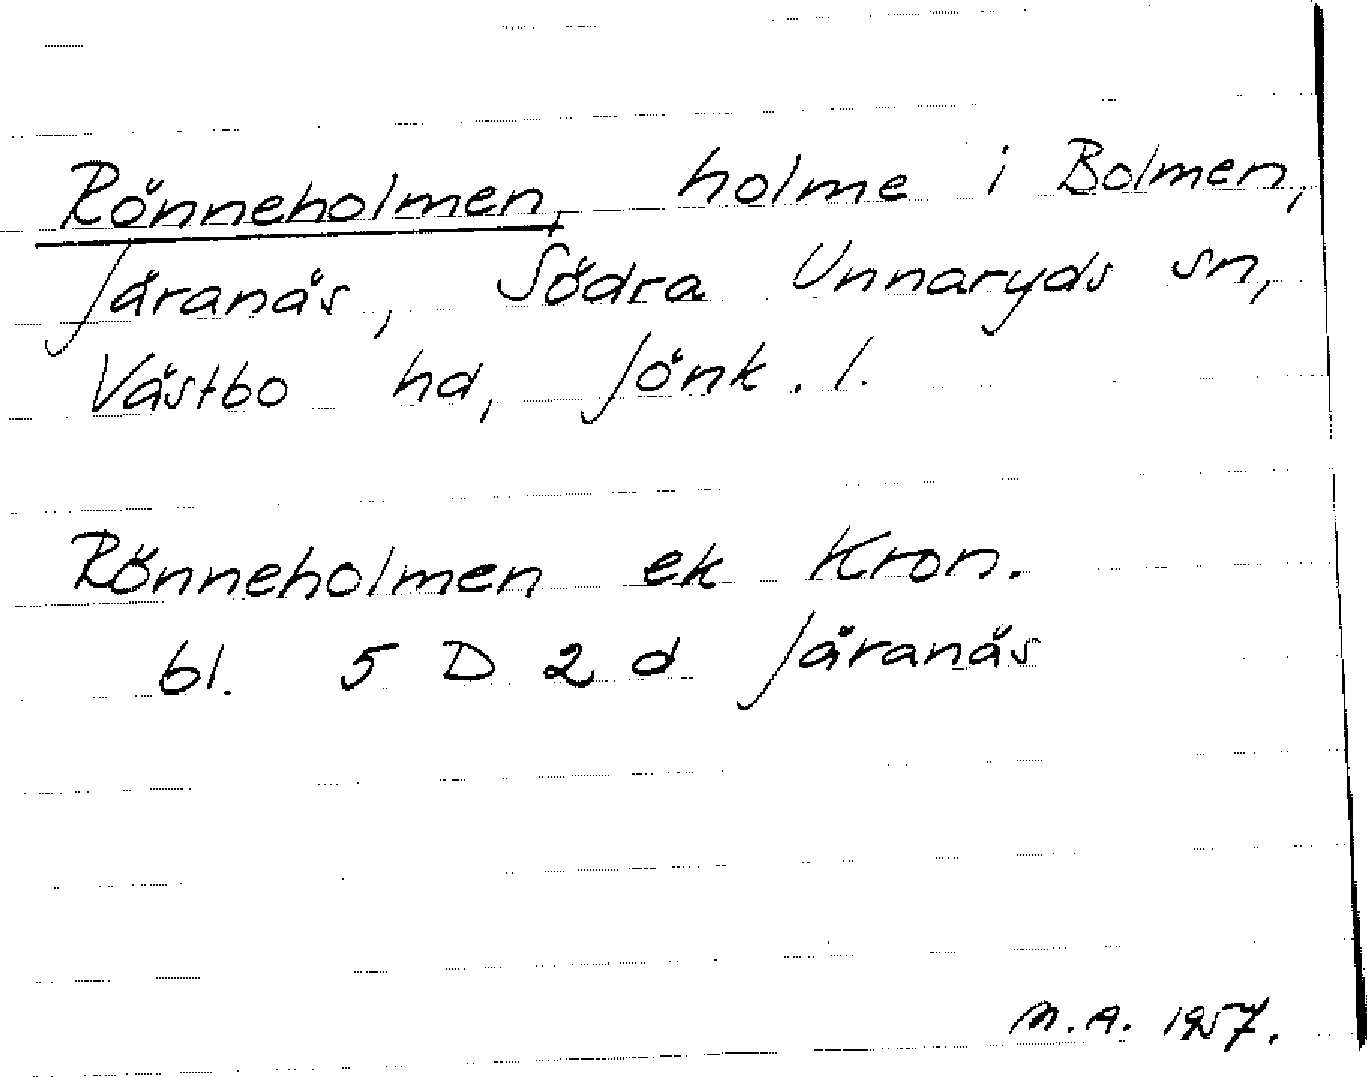 Rönneholmen, holme i Bolmen,
Järanäs, Södra Unnaryds sn,
Västbo hd, Jönk. l.
Rönneholmen ek Kron.
bl. 5 D 2 d Järanäs
M.A. 1957.